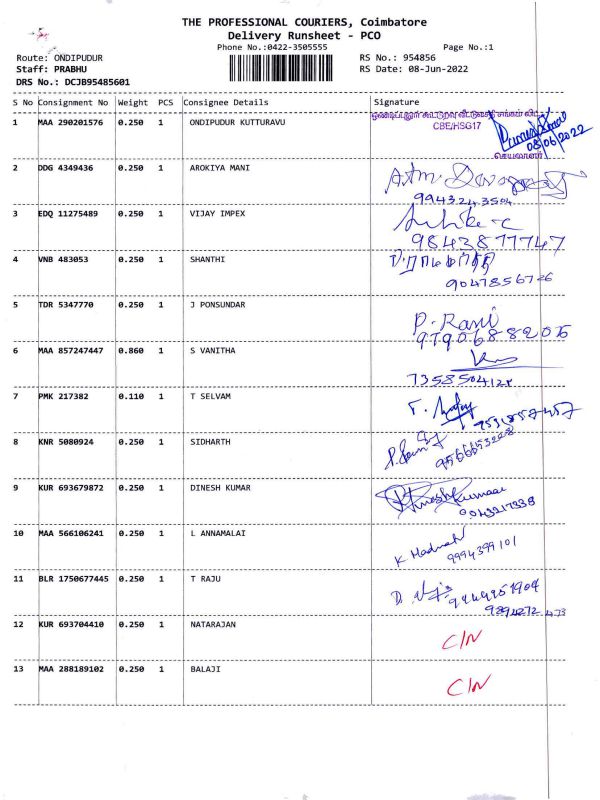 THE PROFESSIONAL COURIERS, Coimbatore
Delivery Runsheet - PCO
Phone No.:0422-3505555 Page No.:1
Route: ONDIPUDUR RS No.: 954856
Staff: PRABHU RS Date: 08-Jun-2022
DRS No.: DCJB95485601
S No Consignment No Weight PCS Consignee Details Signature
1 MAA 290201576 0.250 1 ONDIPUDUR KUTTURAVU
CBE/HSG17
08/06/2022
செயலாளர்
2 DDG 4349436 0.250 1 AROKIYA MANI
9943243504
3 EDQ 11275489 0.250 1 VIJAY IMPEX
9843877747
4 VNB 483053 0.250 1 SHANTHI
9047856726
5 TDR 5347770 0.250 1 J PONSUNDAR P. Rani
6 MAA 857247447 0.860 1 S VANITHA
7 PMK 217382 0.110 1 T SELVAM
8 KNR 5080924 0.250 1 SIDHARTH
9 KUR 693679872 0.250 1 DINESH KUMAR
10 MAA 566106241 0.250 1 L ANNAMALAI
9994399101
11 BLR 1750677445 0.250 1 T RAJU
12 KUR 693704410 0.250 1 NATARAJAN C/N
13 MAA 288189102 0.250 1 BALAJI C/N